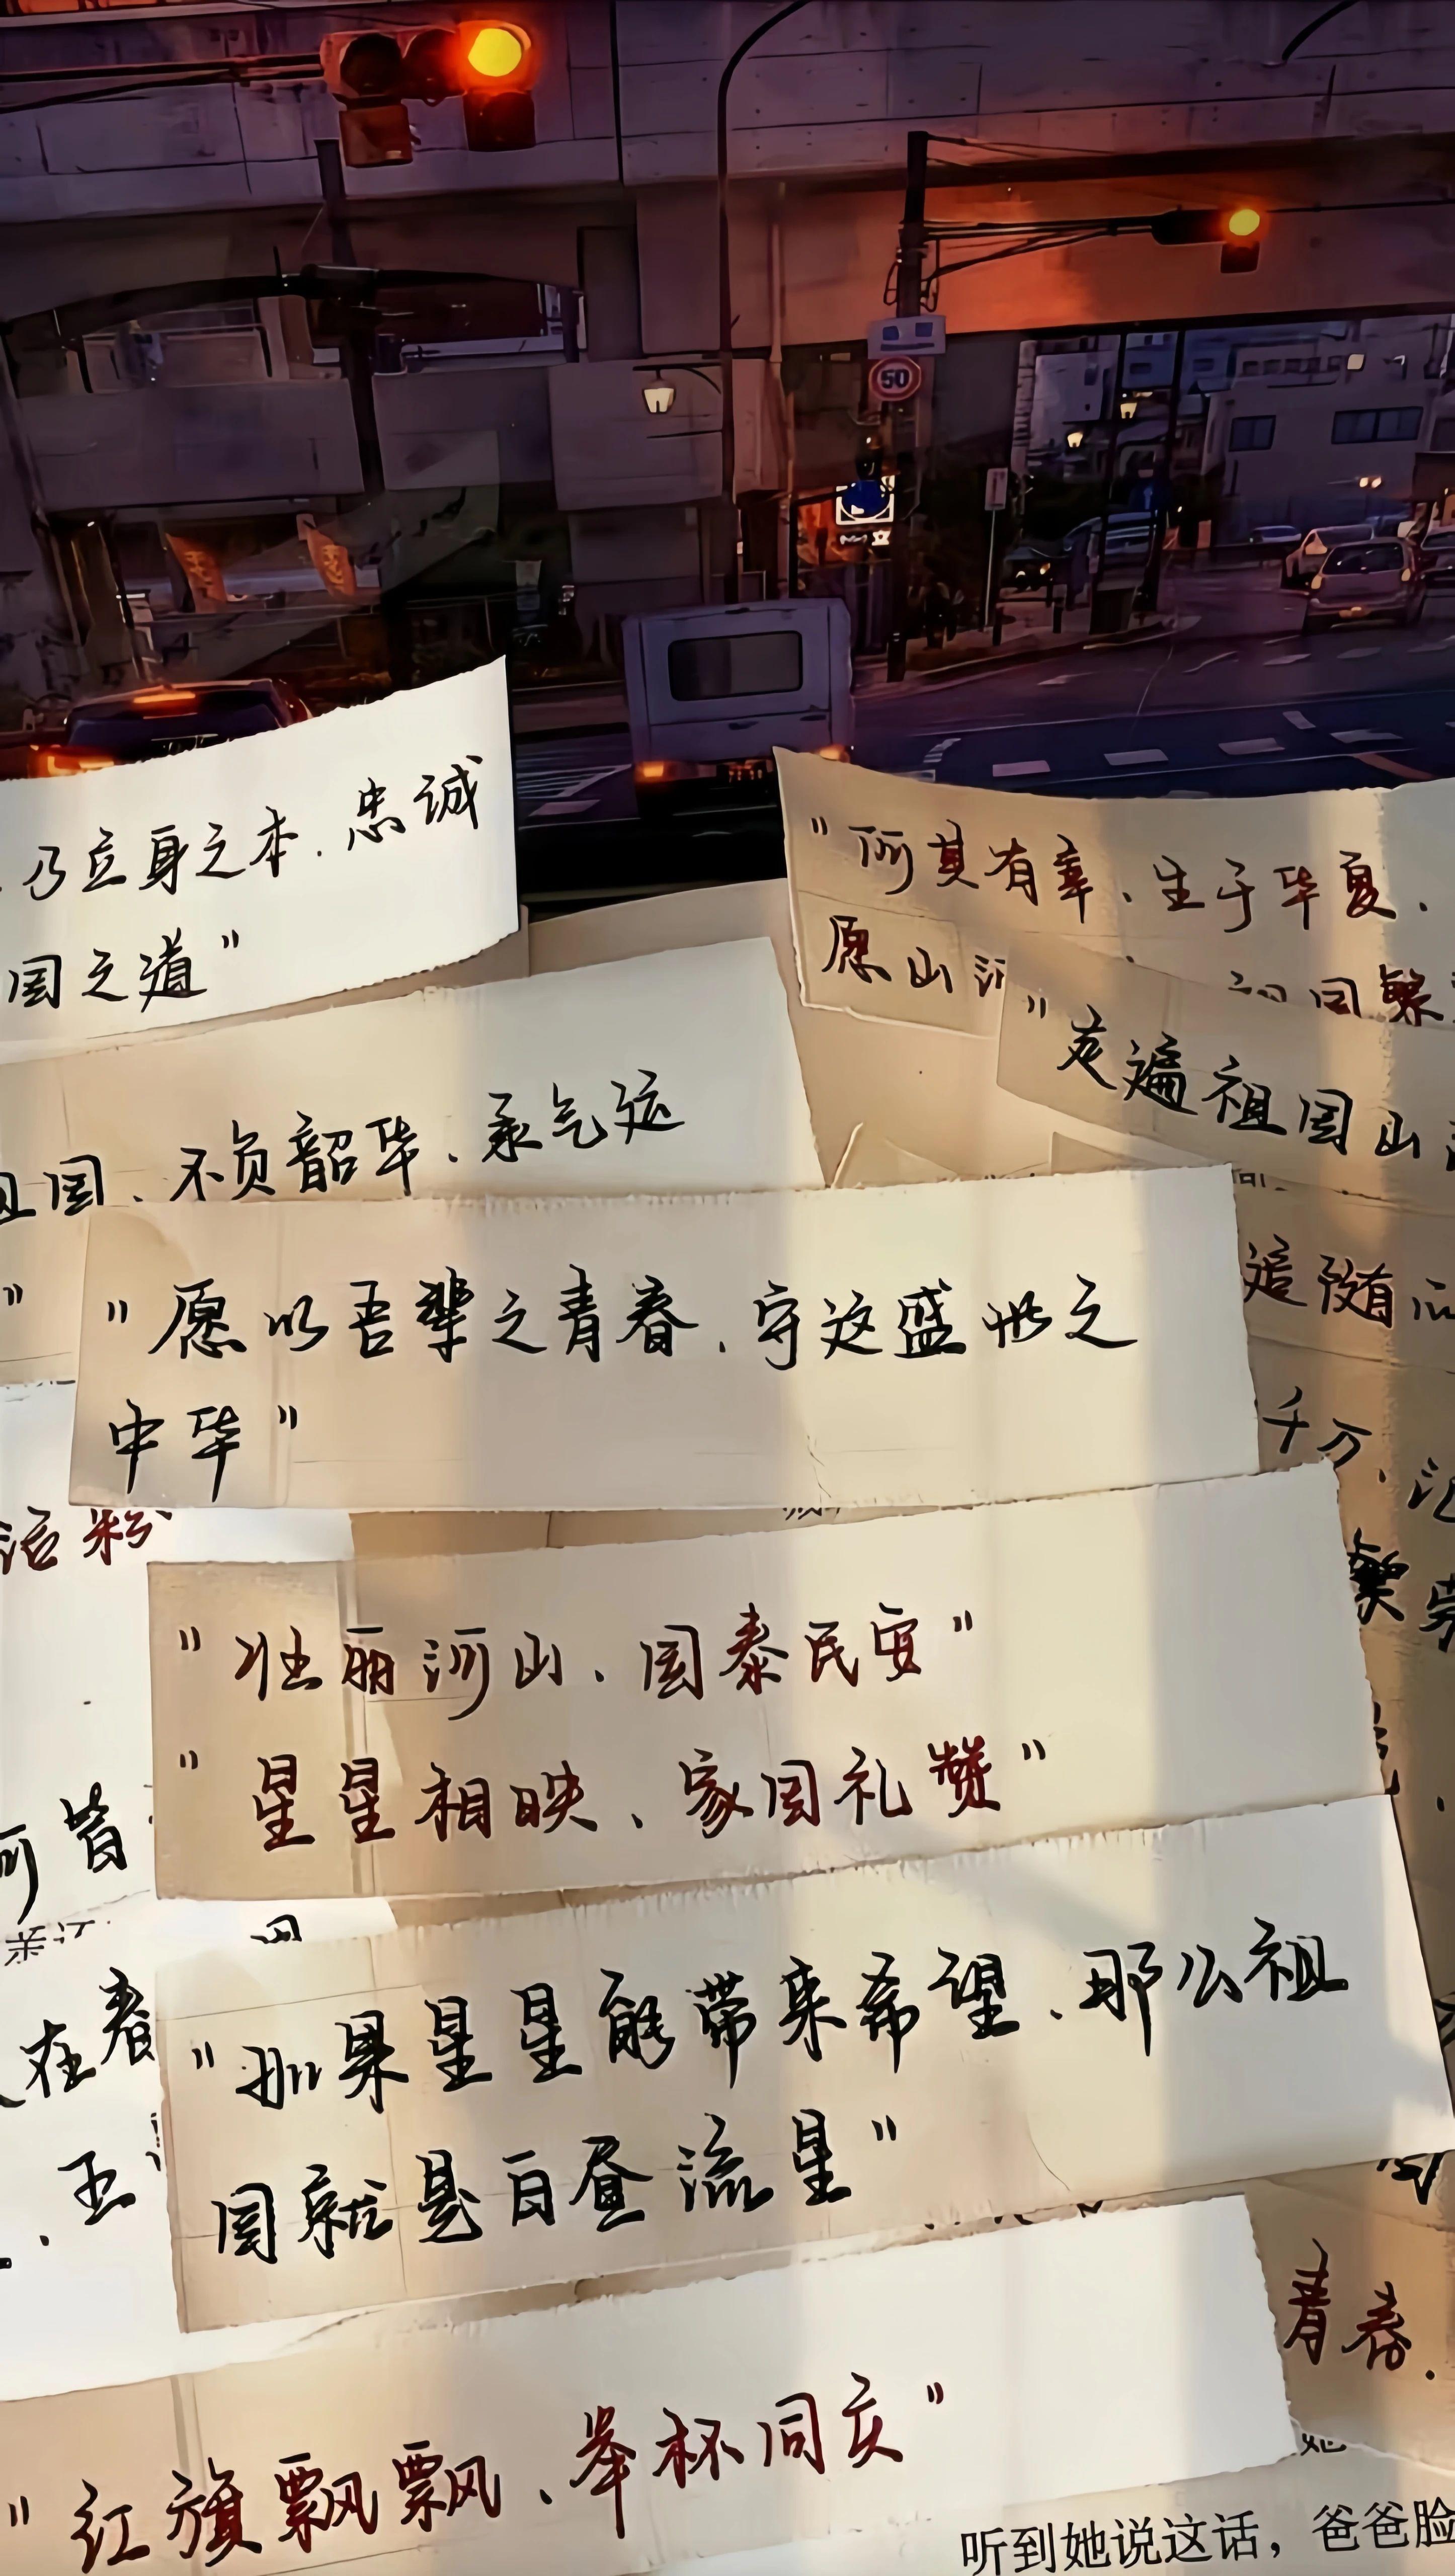 50
乃立身之本.忠诚
国之道"
"何其有幸、生于华夏.
愿山河
祖国繁
"走遍祖国山
祖国、不负韶华.承气运
"
追随
"愿以吾辈之青春.守这盛世之
中华"
千万.
繁荣
活粉
"壮丽河山、国泰民安"
"星星相映、家国礼赞"
河皆
在春
"如果星星能带来希望.那么祖
国就是白昼流星"
.五
青春.
"红旗飘飘、举杯同庆"
她
听到她说这话，爸爸脸